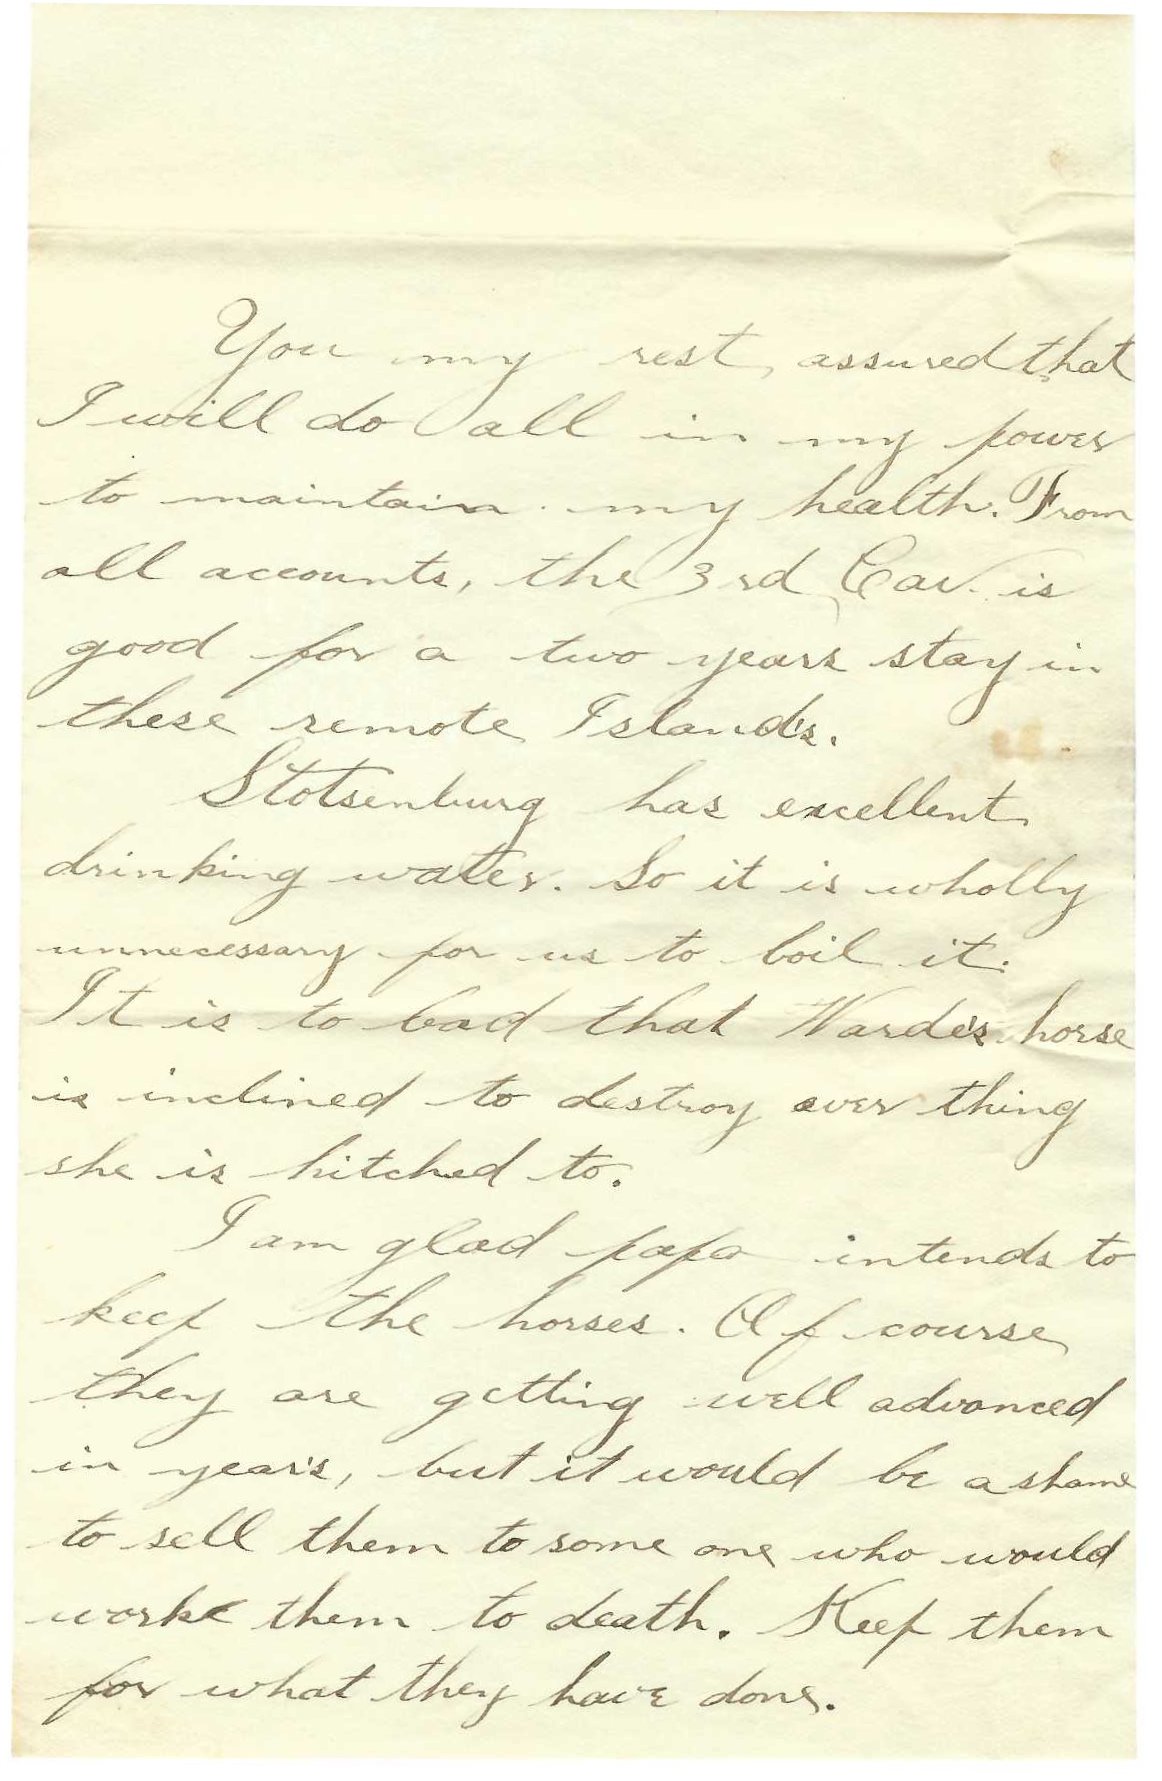 You my rest assured that
I will do all in my power
to maintain my health. From
all accounts, the 3rd Cav. is
good for a two years stay in
these remote Islands.
Stotsenburg has excellent
drinking water. So it is wholly
unnecessary for us to boil it.
It is to bad that Warde's horse
is inclined to destroy ever thing
she is hitched to.
I am glad papa intends to
keep the horses. Of course
they are getting well advanced
in years, but it would be a shame
to sell them to some one who would
work them to death. Keep them
for what they have done.